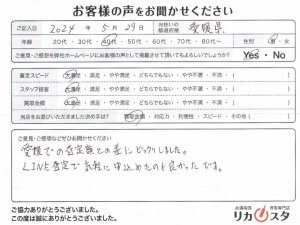 お客様の声をお聞かせください
ご記入日 2024年 5月 29日 お住いの都道府県 愛媛県
年齢 20代・30代・40代・50代・60代・70代・80代～ 性別 男・女
ご意見・ご感想を弊社ホームページにお客様の声として掲載させて頂いてもよろしいでしょうか？ Yes・No
査定スピード 大満足 ・ 満足 ・ やや満足 ・ どちらでもない ・ やや不満 ・ 不満
スタッフ接客 大満足 ・ 満足 ・ やや満足 ・ どちらでもない ・ やや不満 ・ 不満
買取金額 大満足 ・ 満足 ・ やや満足 ・ どちらでもない ・ やや不満 ・ 不満
当店をお選びいただきました決め手は？ 買取金額 ・ 対応力 ・ 利便性 ・ スピード ・ その他（ ）
ご意見・ご感想などぜひお聞かせください
愛媛での査定額との差にビックリしました。
LINE査定で気軽に申込めたのも良かったです。
ご協力ありがとうございました。
この度は誠にありがとうございました。
お酒高価買取専門店
リカスタ